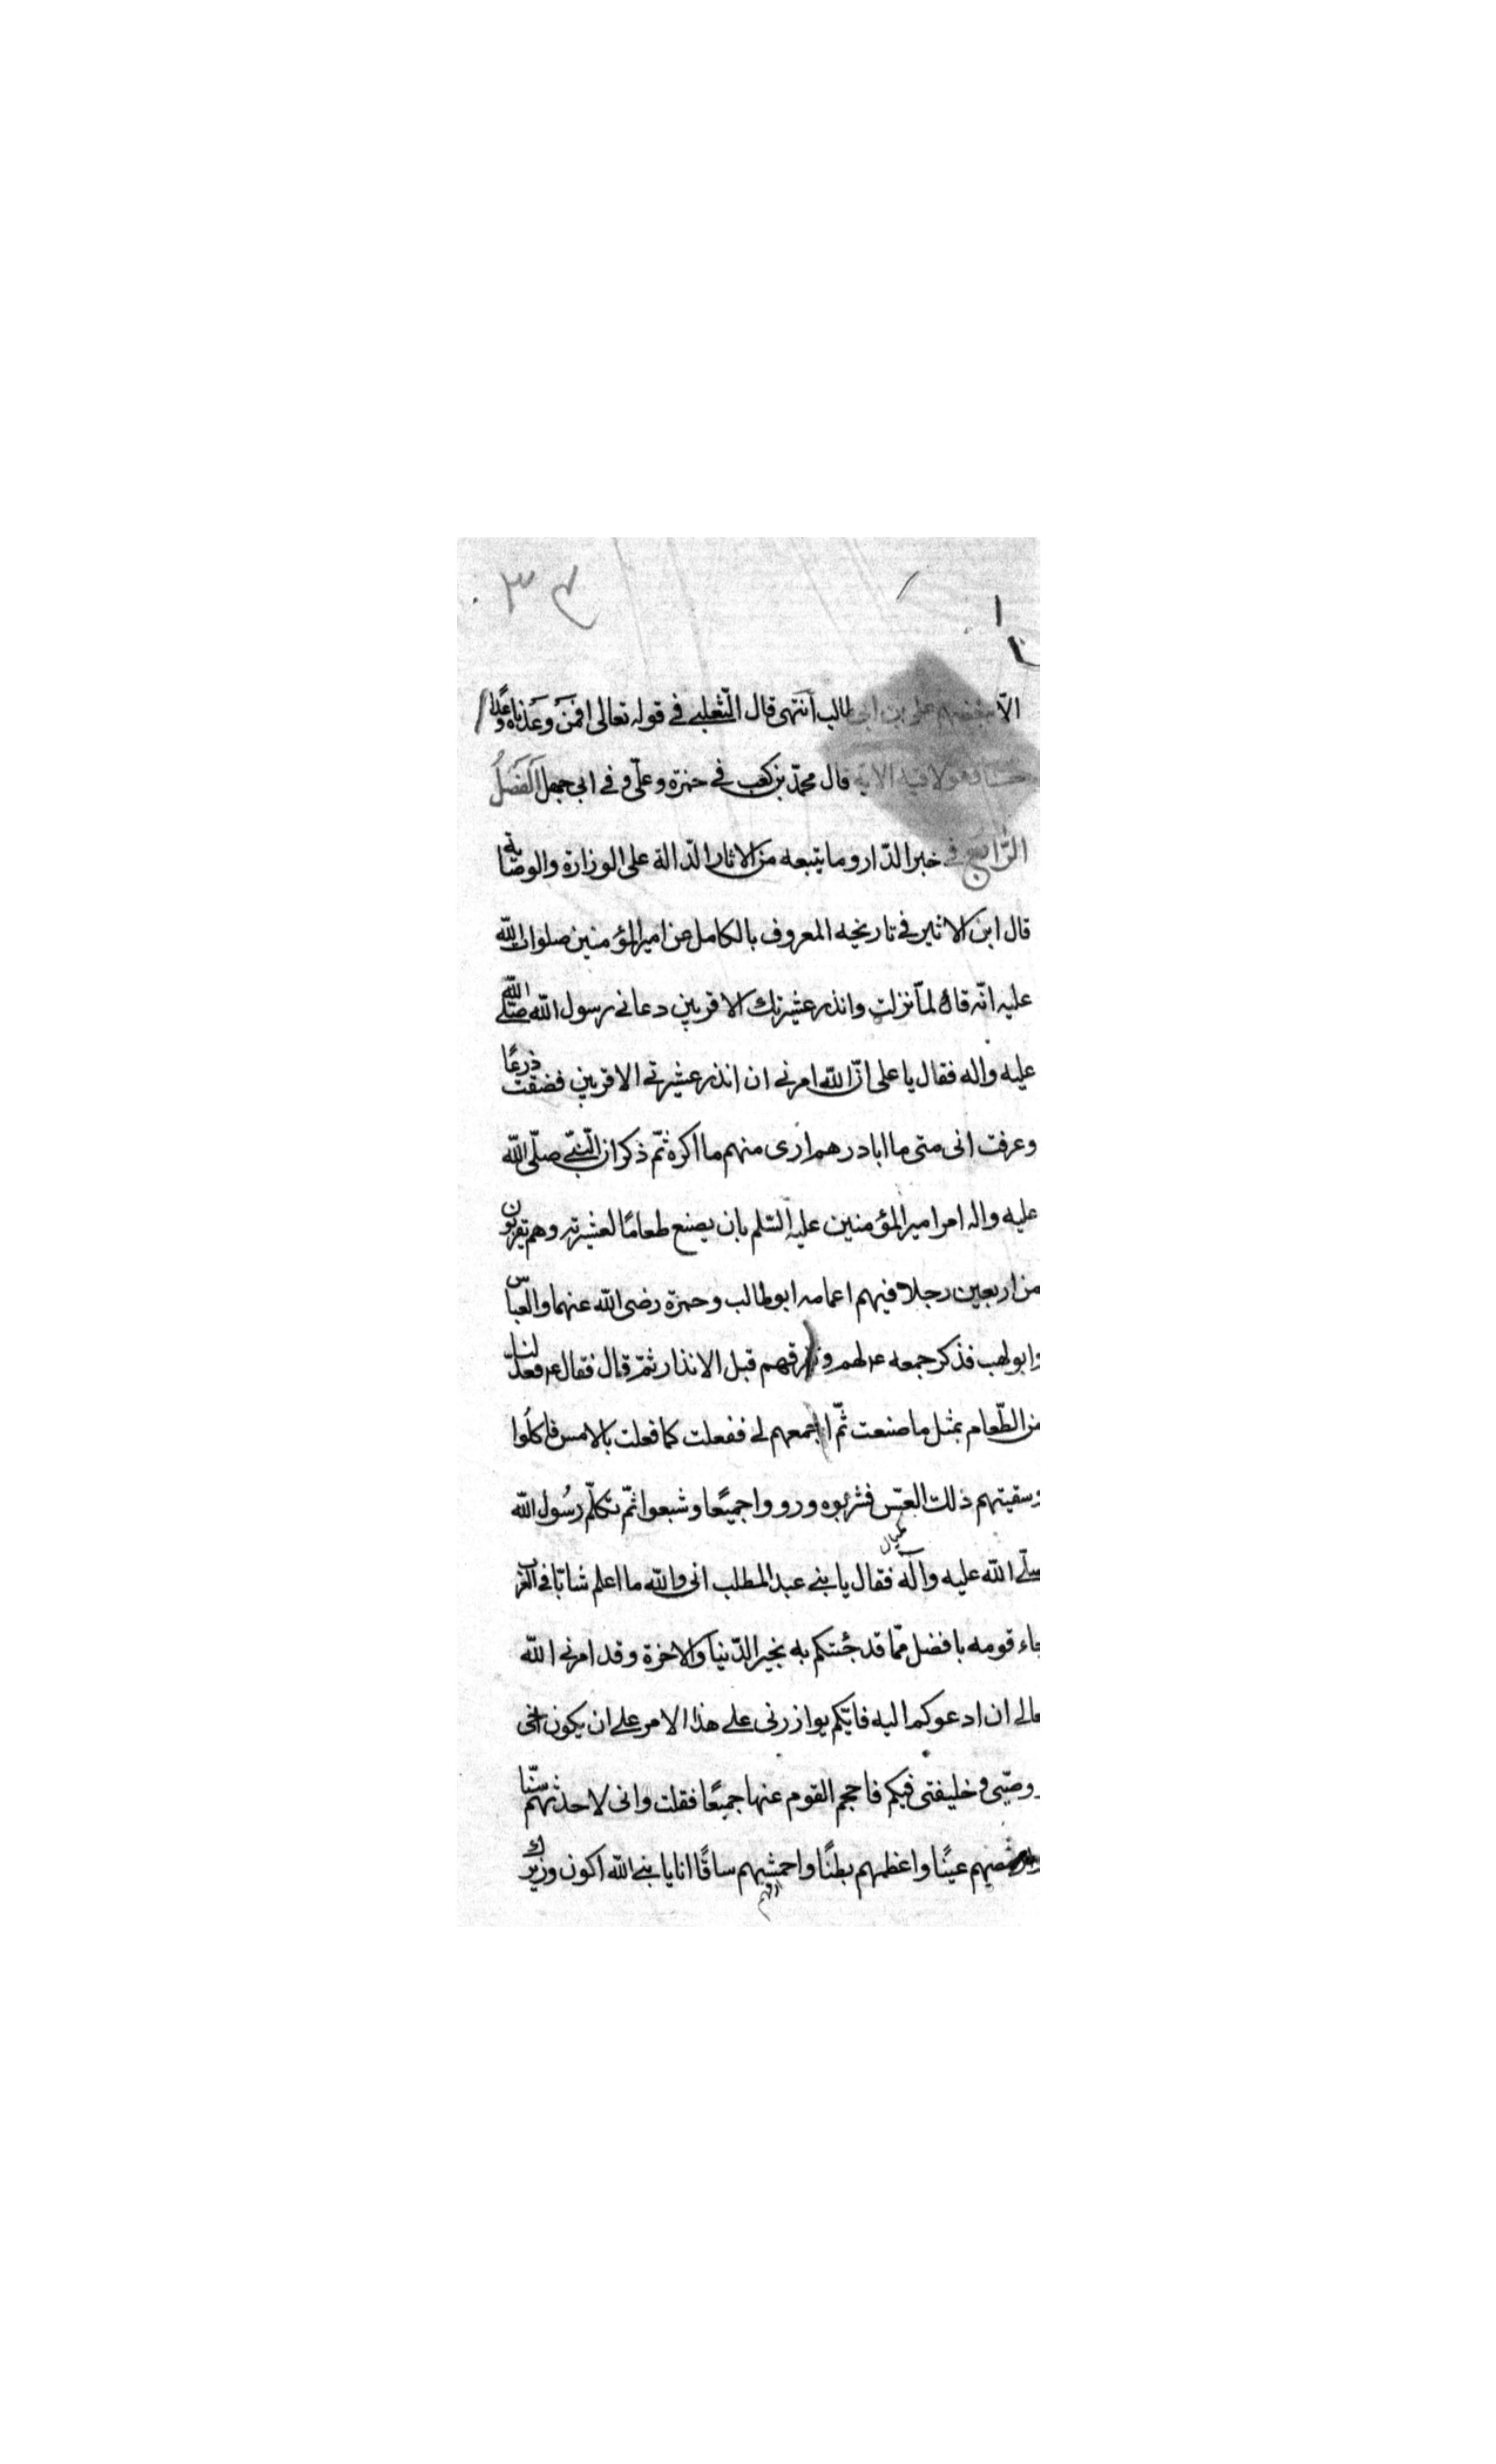 ٣٤
الّا ببغضهم علي بن ابي طالب انتهى قال الثّعلبي في قوله تعالى افمن وعدناه وعدًا
حسنا فهو لاقيه الاية قال محمّد بن كعب في حمزة وعليّ وفي ابي جهل الفصل
الرّابع في خبر الدّار وما يتبعه من الاثار الدّالة على الوزارة والوصاية
قال ابن الاثير في تاريخه المعروف بالكامل عن امير المؤمنين صلوات الله
عليه انّه قال لمّا نزلت وانذر عشيرتك الاقربين دعاني رسول الله صلّى الله
عليه واله فقال يا علي انّ الله امرني ان انذر عشيرتي الاقربين فضقت ذرعًا
وعرفت انى متى ما ابادرهم ارى منهم ما اكره ثمّ ذكر ان النّبيّ صلّى الله
عليه واله امر امير المؤمنين عليه السّلم بان يصنع طعامًا لعشيرته وهم يقربون
من اربعين رجلا فيهم اعمامه ابو طالب وحمزة رضى الله عنهما والعبّاس
وابو لهب فذكر جمعه لهم وتفرقهم قبل الانذار ثمّ قال فقال فعد لنا
من الطّعام بمثل ما صنعت ثمّ اجمعهم لي ففعلت كما فعلت بالامس فاكلُوا
وسقيتهم ذلك العسّ فشربوه ورووا جميعًا وشبعوا ثمّ تكلّم رسُول الله
صلّى الله عليه واله فقال يا بني عبد المطلب انى والله ما اعلم شابّا في العرب
جاء قومه بافضل ممّا قد جئتكم به بخير الدّنيا والاخرة وقد امرني الله
تعالى ان ادعوكم اليه فايّكم يوازرنى على هذا الامر على ان يكون اخى
ووصيّي وخليفتى فيكم فاحجم القوم عنها جميعًا فقلت وانى لاحدثهم سنّا
وارمصهم عينًا واعظمهم بطنًا واحمشهم ساقًا انا يا نبي الله اكون وزيرك